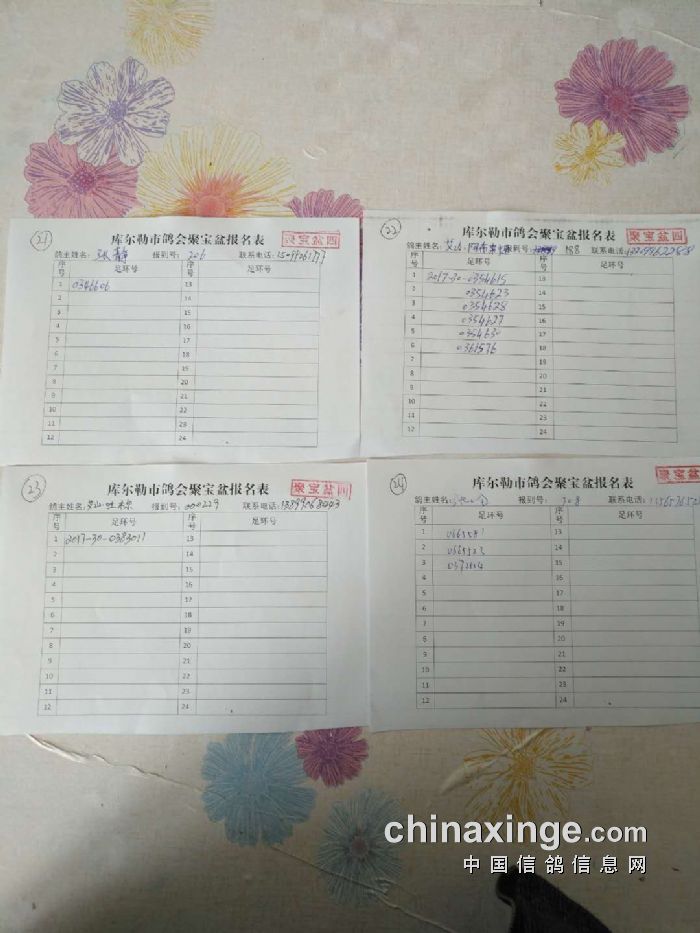 21
库尔勒市鸽会聚宝盆报名表
聚宝盆四
鸽主姓名: 张静 报到号: 206 联系电话:
序号 足环号 序号 足环号
1 0346606 13
2 14
3 15
4 16
5 17
6 18
7 19
8 20
9 21
10 22
11 23
12 24
22
库尔勒市鸽会聚宝盆报名表
聚宝盆四
鸽主姓名: 报到号: 168 联系电话:
序号 足环号 序号 足环号
1 2017-30-0354615 13
2 0354623 14
3 0354628 15
4 0354627 16
5 0354630 17
6 0361576 18
7 19
8 20
9 21
10 22
11 23
12 24
23
库尔勒市鸽会聚宝盆报名表
聚宝盆四
鸽主姓名: 报到号: 000229 联系电话:
序号 足环号 序号 足环号
1 2017-30-0383011 13
2 14
3 15
4 16
5 17
6 18
7 19
8 20
9 21
10 22
11 23
12 24
24
库尔勒市鸽会聚宝盆报名表
聚宝盆
鸽主姓名: 报到号: 308 联系电话:
序号 足环号 序号 足环号
1 13
2 14
3 15
4 16
5 17
6 18
7 19
8 20
9 21
10 22
11 23
12 24
chinaxinge.com
中国信鸽信息网